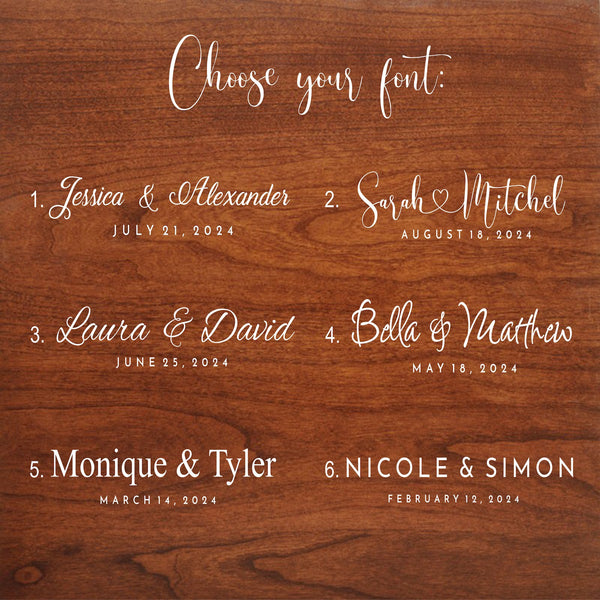 Choose your font:
1. Jessica & Alexander
JULY 21, 2024
2. Sarah♡Mitchel
AUGUST 18, 2024
3. Laura & David
JUNE 25, 2024
4. Bella & Matthew
MAY 18, 2024
5. Monique & Tyler
MARCH 14, 2024
6. NICOLE & SIMON
FEBRUARY 12, 2024